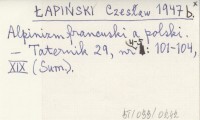 ŁAPIŃSKI Czesław 1947 b.
Alpinizm francuski a polski.
— Taternik 29, nr 4-5: 101-104,
XIX (Sum.).